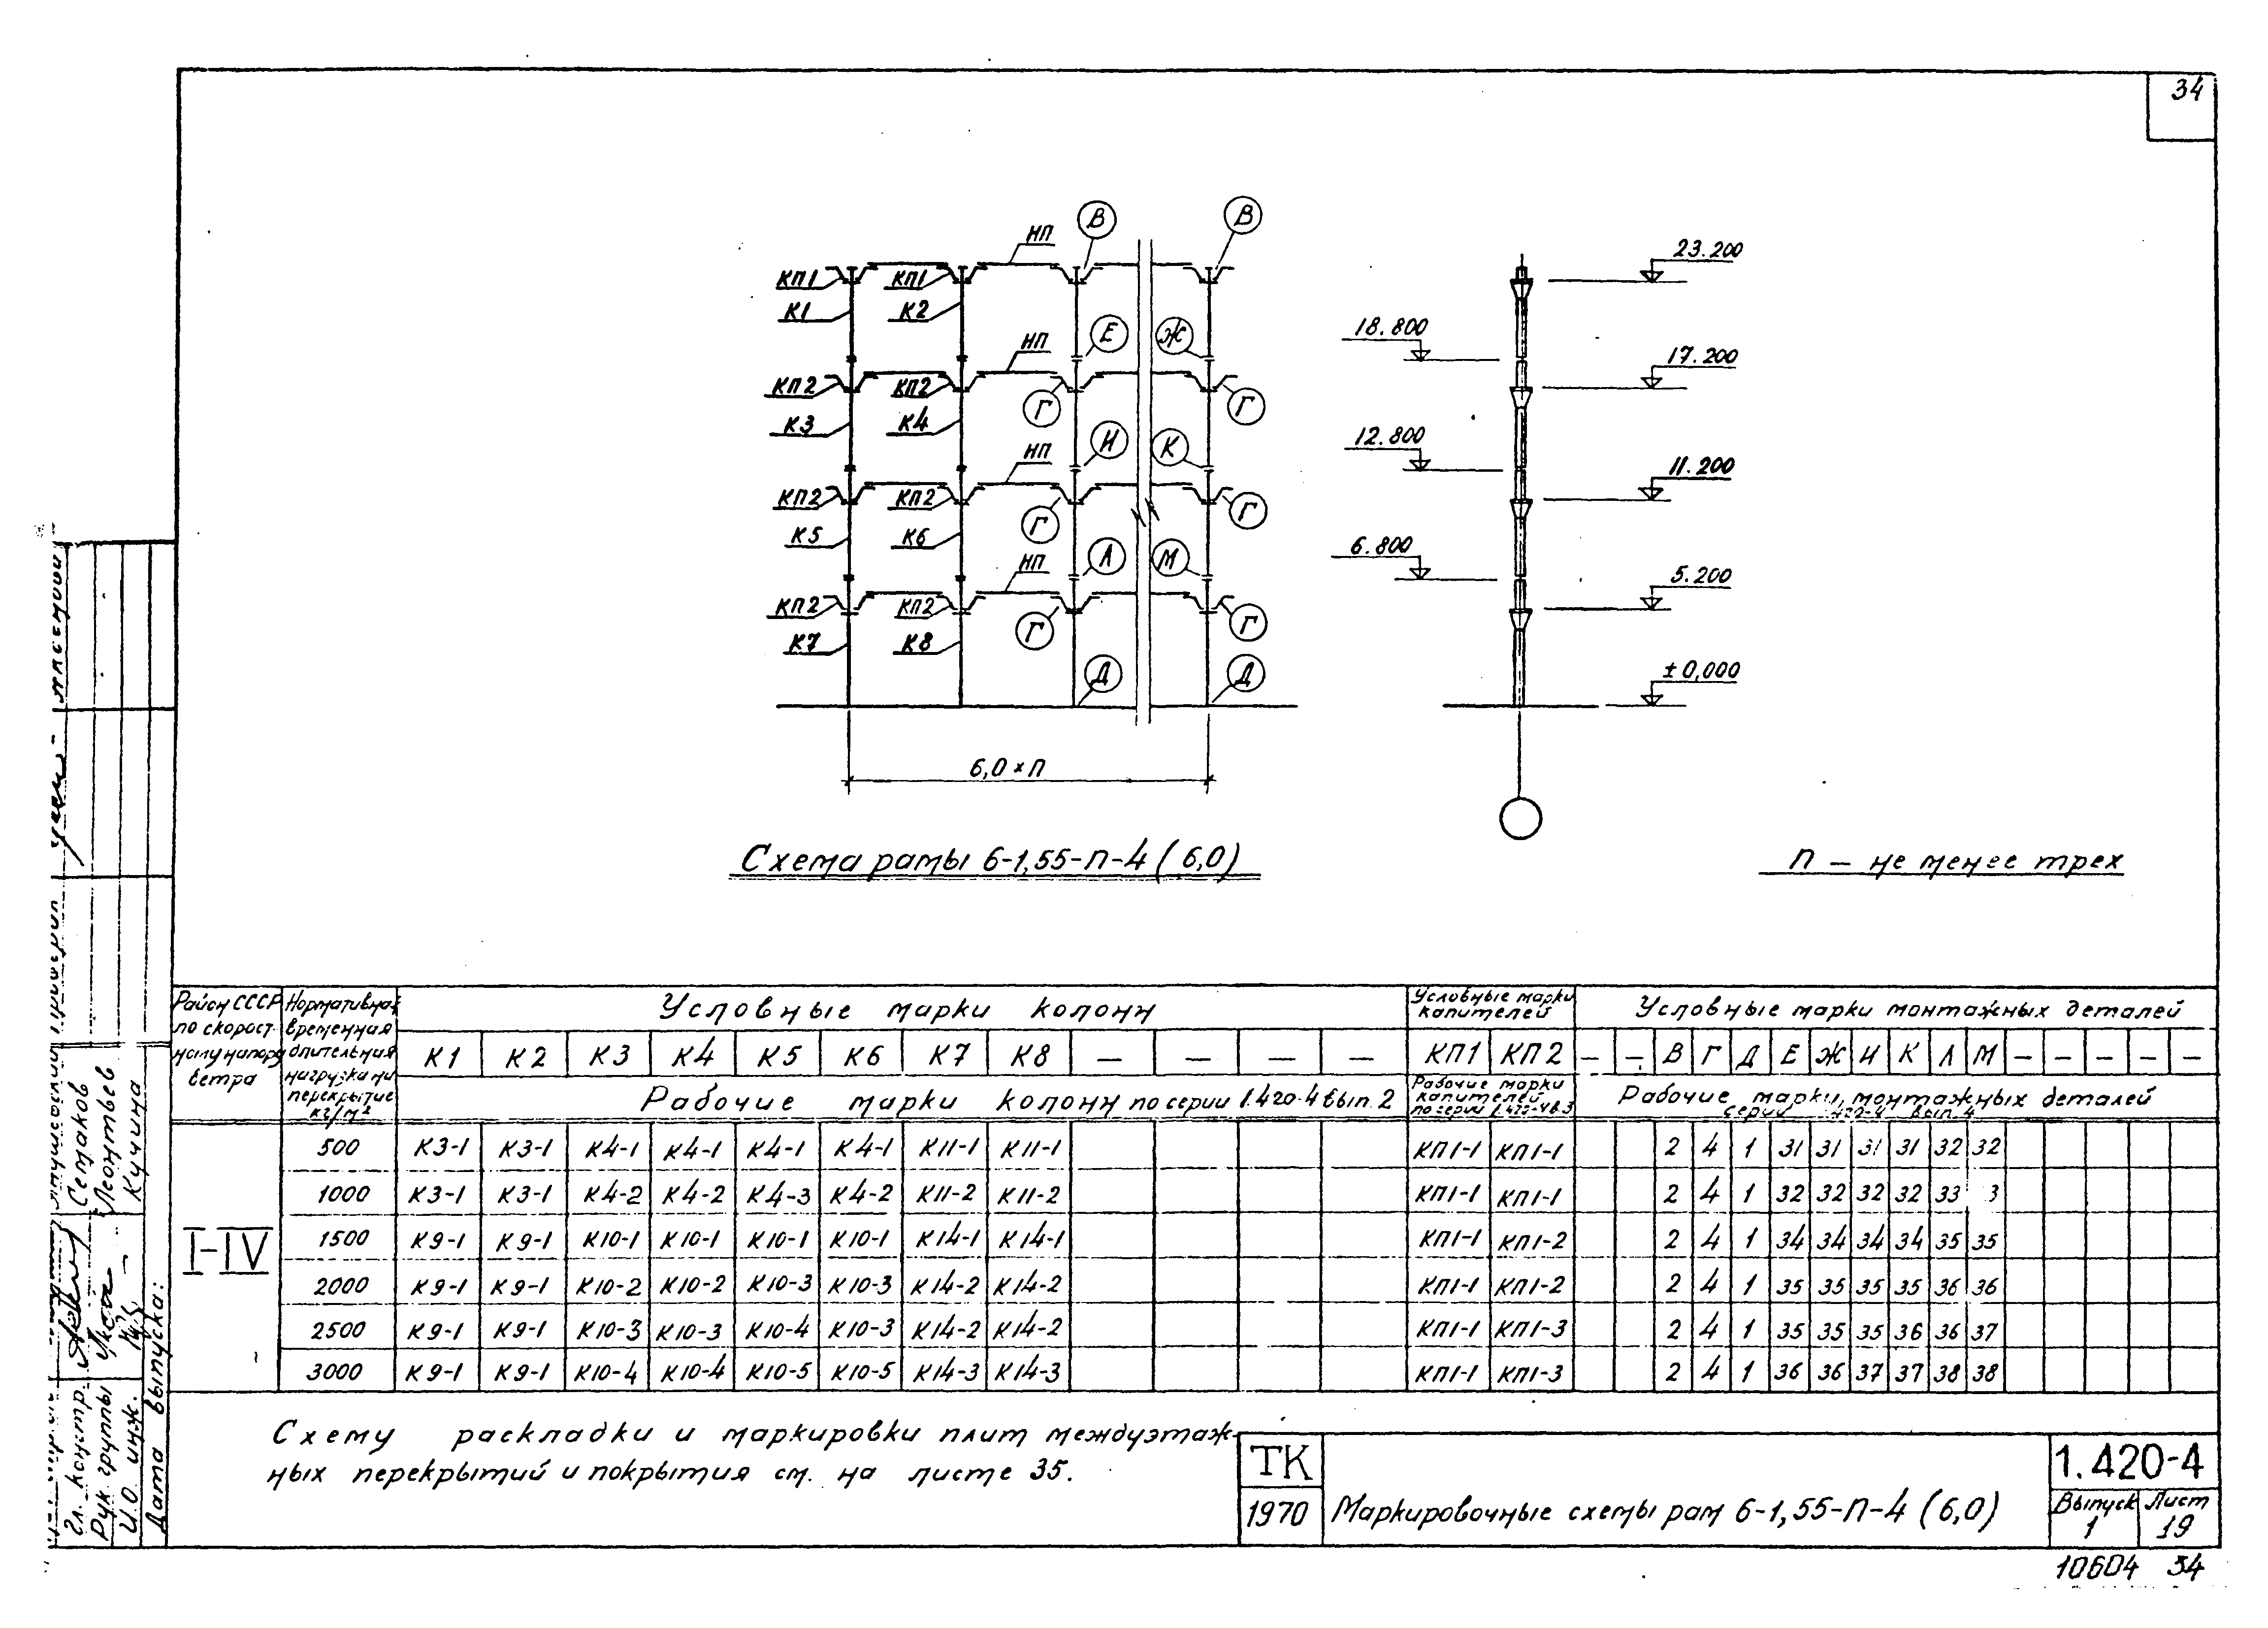 34
В В
НП
КП1 КП1
К1 К2
Е Ж
НП
КП2 КП2
Г Г
К3 К4
И К
НП
КП2 КП2
Г Г
К5 К6
Л М
НП
КП2 КП2
Г Г
К7 К8
Д Д
6,0×П
23.200
18.800
17.200
12.800
11.200
6.800
5.200
±0,000
Схема рамы 6-1,55-П-4 (6,0)
П – не менее трех
Район СССР по скоростному напору ветра
Нормативная временная длительная нагрузка на перекрытие кг/м²
Условные марки колонн
Условные марки капителей
Условные марки монтажных деталей
К1 К2 К3 К4 К5 К6 К7 К8 — — — — КП1 КП2 — — В Г Д Е Ж И К Л М — — — — —
Рабочие марки колонн по серии 1.420-4 вып. 2
Рабочие марки капителей по серии 1.420-4 в.3
Рабочие марки монтажных деталей серии 1.420-4 вып. 4
I-IV
500 К3-1 К3-1 К4-1 К4-1 К4-1 К4-1 К11-1 К11-1 КП1-1 КП1-1 2 4 1 31 31 31 31 32 32
1000 К3-1 К3-1 К4-2 К4-2 К4-3 К4-2 К11-2 К11-2 КП1-1 КП1-1 2 4 1 32 32 32 32 33 3
1500 К9-1 К9-1 К10-1 К10-1 К10-1 К10-1 К14-1 К14-1 КП1-1 КП1-2 2 4 1 34 34 34 34 35 35
2000 К9-1 К9-1 К10-2 К10-2 К10-3 К10-3 К14-2 К14-2 КП1-1 КП1-2 2 4 1 35 35 35 35 36 36
2500 К9-1 К9-1 К10-3 К10-3 К10-4 К10-3 К14-2 К14-2 КП1-1 КП1-3 2 4 1 35 35 35 36 36 37
3000 К9-1 К9-1 К10-4 К10-4 К10-5 К10-5 К14-3 К14-3 КП1-1 КП1-3 2 4 1 36 36 37 37 38 38
Схему раскладки и маркировки плит междуэтаж-
ных перекрытий и покрытия см. на листе 35.
ТК
1970
Маркировочные схемы рам 6-1,55-П-4 (6,0)
1.420-4
Выпуск 1
Лист 19
10604 34
Гл. констр. Семаков
Рук. группы Леонтьев
И.О. инж. Кучина
Дата выпуска: